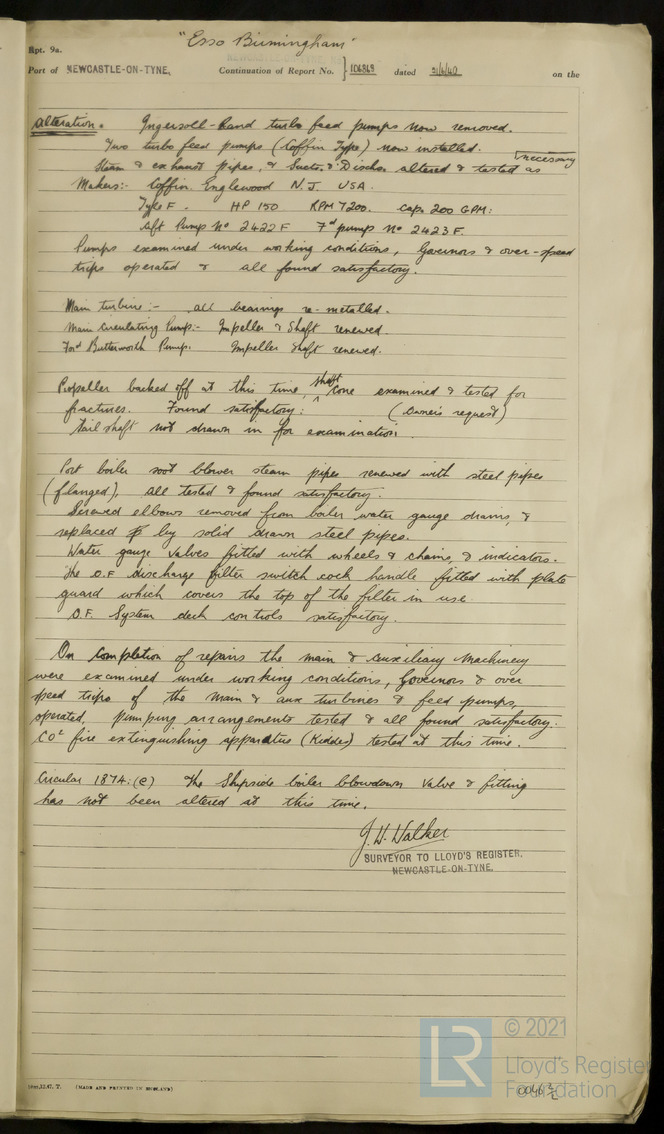 "Esso Birmingham"
Rpt. 9a.
Port of NEWCASTLE-ON-TYNE, Continuation of Report No. dated on the
Alteration. Ingersoll-Rand turbo feed pumps now removed.
Two turbo feed pumps (Coffin Type) now installed.
necessary
Steam & exhaust pipes, & Suctn. & Dischge. altered & tested as
Makers:- Coffin. Englewood N.J. USA.
Type F. HP 150 RPM 7200. cap. 200 GPM:
Aft Pump No 2422 F Fd pumps No 2423 F.
Pumps examined under working conditions, Governors & over-speed
trips operated & all found satisfactory.
Main turbine:- all bearings re-metalled.
Main Circulating Pump:- Impeller & Shaft renewed.
Ford Butterworth Pump. Impeller shaft renewed.
Propeller backed off at this time, shaft cone examined & tested for
fractures. Found satisfactory: (Owners request)
Tail shaft not drawn in for examination.
Port boiler soot blower steam pipes renewed with steel pipes
(flanged), all tested & found satisfactory.
Screwed elbows removed from boiler water gauge drains, &
replaced by solid drawn steel pipes.
Water gauge valves fitted with wheels & chains, & indicators.
The O.F discharge filter switch cock handle fitted with plate
guard which covers the top of the filter in use.
O.F. System deck controls satisfactory.
On completion of repairs the main & auxiliary machinery
were examined under working conditions, Governors & over
speed trips of the main & aux turbines & feed pumps,
operated, pumping arrangements tested & all found satisfactory.
CO² fire extinguishing apparatus (Kidde) tested at this time.
Circular 1874:(e) The Shipside boiler blowdown valve & fitting
has not been altered at this time.
J. H. Walker
SURVEYOR TO LLOYD'S REGISTER.
NEWCASTLE-ON-TYNE.
LR © 2021
Lloyd's Register
Foundation
(MADE AND PRINTED IN ENGLAND)